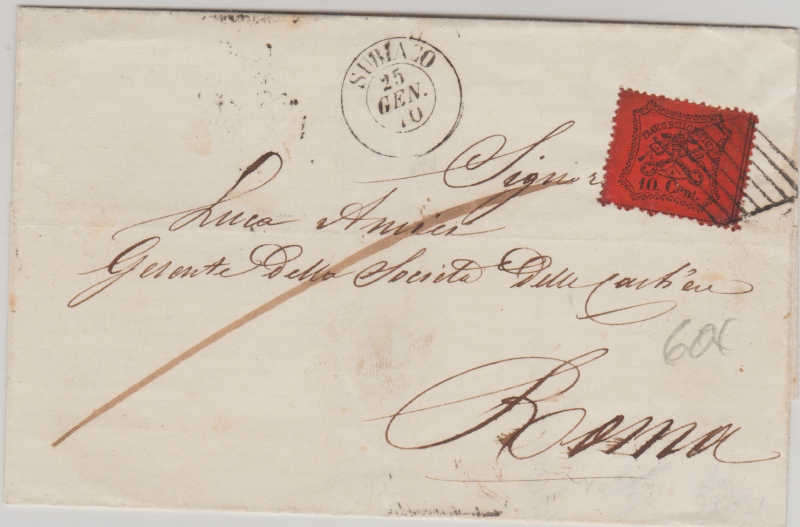 SUBIACO
25
GEN.
70
FRANCO BOLLO
10. Cent.
Signor
Luca Amici
Gerente della Società delle Cartiere
60€
Roma